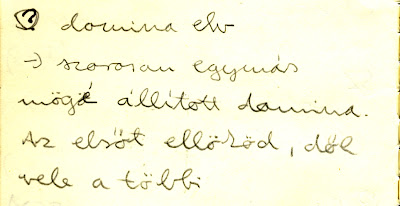 ? domina elv
→ szorosan egymás
mögé állított domina.
Az elsőt ellököd, dől
vele a többi